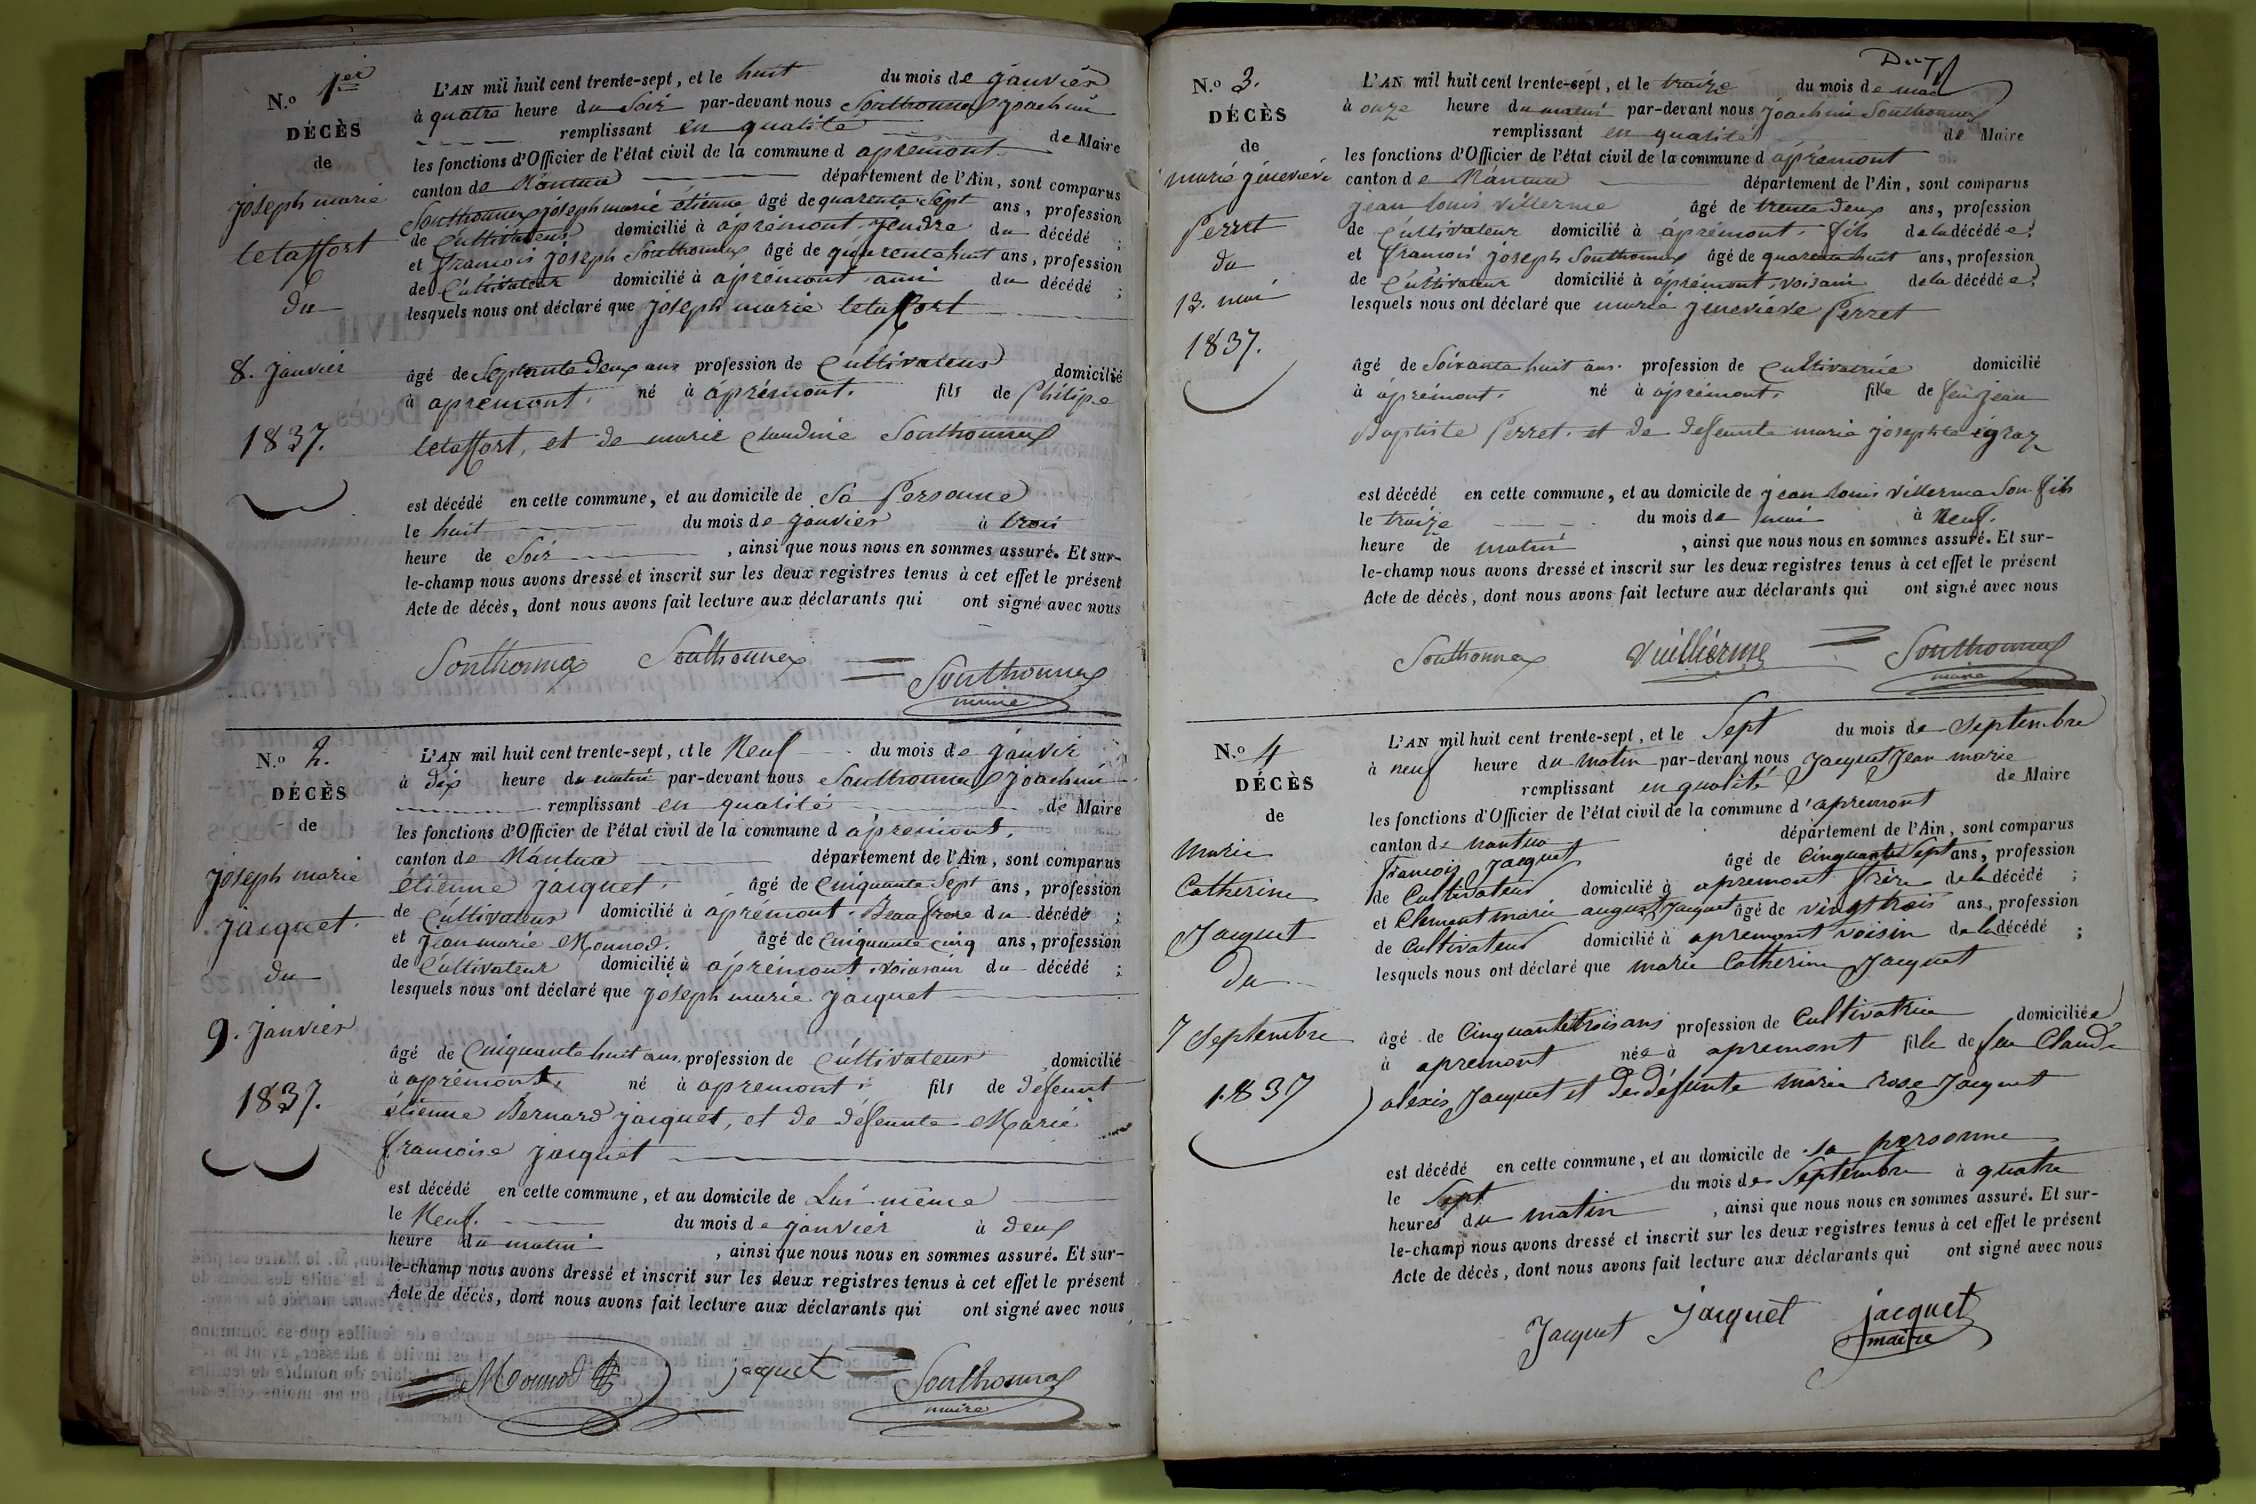 N.o 1.er
DÉCÈS
de
joseph marie
letaffort
du
8. janvier
1837.
L'AN mil huit cent trente-sept, et le huit du mois de janvier
à quatre heure du Soir par-devant nous Southonnax joachim
remplissant en qualité de Maire
les fonctions d'Officier de l'état civil de la commune d apremont
canton de Nantua département de l'Ain, sont comparus
Southonnax joseph marie étienne âgé de quarente Sept ans, profession
de Cultivateur domicilié à aprémont. gendre du décédé ;
et francois joseph Southonnax âgé de quarente huit ans, profession
de Cultivateur domicilié à aprémont ami du décédé ;
lesquels nous ont déclaré que joseph marie letaffort
âgé de Septante deux ans profession de Cultivateur domicilié
à apremont. né à aprémont. fils de Philipe
letaffort, et de marie claudine Southonnax
est décédé en cette commune, et au domicile de Sa Personne
le huit du mois de janvier à trois
heure de Soir , ainsi que nous nous en sommes assuré. Et sur-
le-champ nous avons dressé et inscrit sur les deux registres tenus à cet effet le présent
Acte de décès, dont nous avons fait lecture aux déclarants qui ont signé avec nous
Southonnax Southonnax Southonnax
maire
N.o 2.
DÉCÈS
de
joseph marie
jacquet.
du
9. janvier
1837.
L'AN mil huit cent trente-sept, et le Neuf du mois de janvier
à dix heure du matin par-devant nous Southonnax joachim
remplissant en qualité de Maire
les fonctions d'Officier de l'état civil de la commune d aprémont.
canton de Nantua département de l'Ain, sont comparus
étienne jacquet. âgé de Cinquante Sept ans, profession
de Cultivateur domicilié à aprémont. Beau frere du décédé ;
et jean marie Monnod. âgé de Cinquante cinq ans, profession
de Cultivateur domicilié à aprémont voiasin du décédé ;
lesquels nous ont déclaré que joseph marie jacquet
âgé de Cinquante huit ans. profession de Cultivateur domicilié
à aprémont. né à apremont. fils de defeunt
étienne Bernard jacquet, et de défeunte Marie
francoise jacquet
est décédé en cette commune, et au domicile de Lui même
le Neuf. du mois de janvier à deux
heure du matin , ainsi que nous nous en sommes assuré. Et sur-
le-champ nous avons dressé et inscrit sur les deux registres tenus à cet effet le présent
Acte de décès, dont nous avons fait lecture aux déclarants qui ont signé avec nous
Monnod jacquet Southonnax
maire
N.o 3.
DÉCÈS
de
marie genevieve
Perret
du
13. mai
1837.
L'AN mil huit cent trente-sept, et le traize du mois de mai
à onze heure du matin par-devant nous joachim Southonnax
remplissant en qualité de Maire
les fonctions d'Officier de l'état civil de la commune d aprémont
canton de Nantua département de l'Ain, sont comparus
jean louis villerme âgé de trente deux ans, profession
de Cultivateur domicilié à aprémont. fils de la décédée ;
et francois joseph Southonnax âgé de quarante huit ans, profession
de Cultivateur domicilié à aprémont. voisain de la décédée ;
lesquels nous ont déclaré que marie genevieve Perret
âgé de Soixante huit ans. profession de Cultivatrice domicilié
à aprémont. né à aprémont. fille de feu jean
Baptiste Perret. et de defeunte marie josephte
est décédé en cette commune, et au domicile de jean louis villerme Son fils
le traize du mois de mai à Neuf.
heure de matin , ainsi que nous nous en sommes assuré. Et sur-
le-champ nous avons dressé et inscrit sur les deux registres tenus à cet effet le présent
Acte de décès, dont nous avons fait lecture aux déclarants qui ont signé avec nous
Southonnax Vuillierme Southonnax
maire
N.o 4
DÉCÈS
de
Marie
Catherine
Jacquet
Du
7 Septembre
1837
L'AN mil huit cent trente-sept, et le Sept du mois de Septembre
à neuf heure du matin par-devant nous Jacquet Jean marie
remplissant en qualité de Maire
les fonctions d'Officier de l'état civil de la commune d'apremont
canton de nantua département de l'Ain, sont comparus
francois Jacquet âgé de Cinquante Sept ans, profession
de Cultivateur domicilié à apremont frère de la décédé ;
et Clement marie auguste Jacquet âgé de vingt trois ans, profession
de Cultivateur domicilié à apremont voisin de la décédé ;
lesquels nous ont déclaré que marie Catherine Jacquet
âgé de Cinquante trois ans profession de Cultivatrice domiciliée
à apremont née à apremont fille de feu Claude
alexis Jacquet et de défunte marie rose Jacquet
est décédé en cette commune, et au domicile de sa personne
le Sept du mois de Septembre à quatre
heures du matin , ainsi que nous nous en sommes assuré. Et sur-
le-champ nous avons dressé et inscrit sur les deux registres tenus à cet effet le présent
Acte de décès, dont nous avons fait lecture aux déclarants qui ont signé avec nous
Jacquet Jacquet jacquet
maire